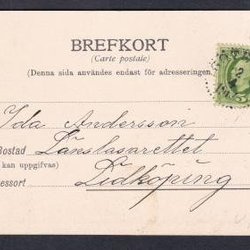 BREFKORT
(Carte postale)
(Denna sida användes endast för adresseringen.)
Ida Andersson
Bostad Länslasarettet
(kan uppgifvas)
Lidköping